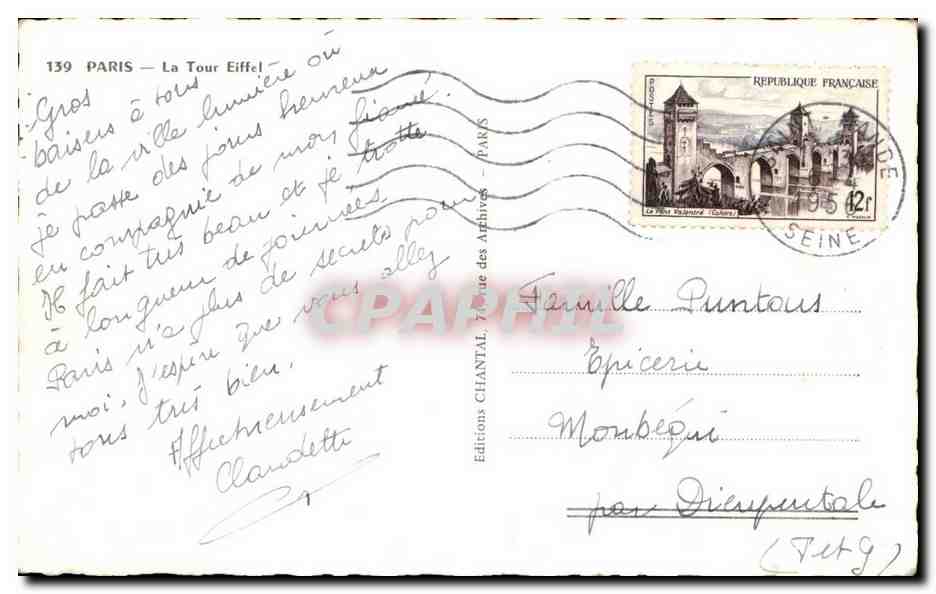 139 PARIS — La Tour Eiffel
Gros
baisers à tous
de la ville lumière où
je passe des jours heureux
en compagnie de mon fiancé.
Il fait très beau et je trotte
à longueur de journées
Paris n'a plus de secrets pour
moi. J'espère que vous allez
tous très bien.
Affectueusement
Claudette
Editions CHANTAL, 74, rue des Archives - PARIS
POSTES
REPUBLIQUE FRANÇAISE
Le Pont Valentré (Cahors)
12f
195
SEINE
Famille Puntous
Epicerie
Monbéqui
par Dieupentale
(T et G)
CPAPHIL